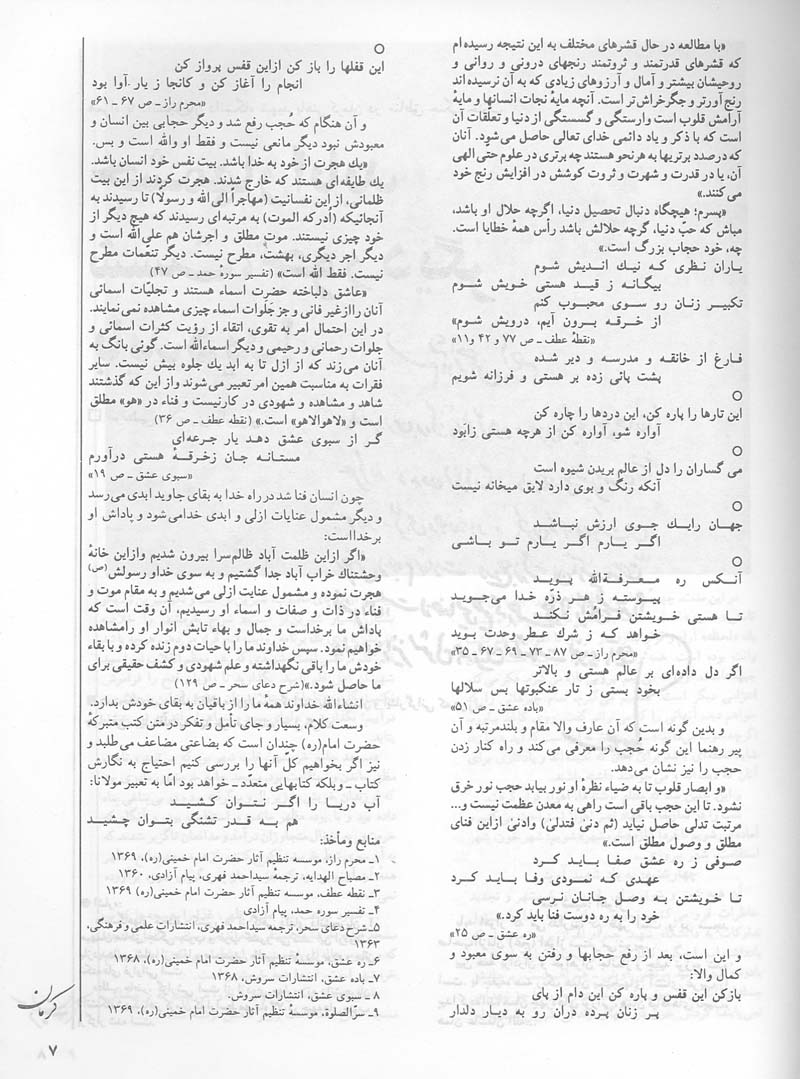 «با مطالعه در حال قشرهای مختلف به این نتیجه رسیده‌ام
که قشرهای قدرتمند و ثروتمند رنجهای درونی و روانی و
روحیشان بیشتر و آمال و آرزوهای زیادی که به آن نرسیده‌اند
رنج آورتر و جگرخراش‌تر است. آنچه مایهٔ نجات انسانها و مایهٔ
آرامش قلوب است وارستگی و گسستگی از دنیا و تعلّقات آن
است که با ذکر و یاد دائمی خدای تعالی حاصل می‌شود. آنان
که درصدد برتریها به هرنحو هستند چه برتری در علوم حتّی الهی
آن، یا در قدرت و شهرت و ثروت کوشش در افزایش رنج خود
می‌کنند.»
«پسرم؛ هیچگاه دنبال تحصیل دنیا، اگرچه حلال او باشد،
مباش که حبّ دنیا، گرچه حلالش باشد رأس همهٔ خطایا است.
چه، خود حجاب بزرگ است.»
یاران نظری که نیك اندیش شوم
بیگانه ز قید هستی خویش شوم
تکبیر زنان رو سوی محبوب کنم
از خرقه برون آیم، درویش شوم»
«نقطهٔ عطف ـ ص ۷۷ و ۴۲ و ۱۱»
فارغ از خانقه و مدرسه و دیر شده
پشت پائی زده بر هستی و فرزانه شویم
○
این تارها را پاره کن، این دردها را چاره کن
آواره شو، آواره کن از هرچه هستی زابَود
○
می گساران را دل از عالم بریدن شیوه است
آنکه رنگ و بوی دارد لایق میخانه نیست
○
جهان رایك جوی ارزش نباشد
اگر یارم اگر یارم تو باشی
○
آنکس ره معرفةالله پوید
پیوسته ز هر ذرّه خدا می‌جوید
تا هستی خویشتن فرامُش نکند
خواهد که ز شرك عطر وحدت بوید
«محرم رازـ ص ۸۷ ـ ۷۳ ـ ۶۹ ـ ۶۷ ـ ۳۵»
اگر دل داده‌ای بر عالم هستی و بالاتر
بخود بستی ز تار عنکبوتها بس سلالها
«باده عشق ـ ص ۵۱»
و بدین گونه است که آن عارف والا مقام و بلندمرتبه و آن
پیر رهنما این گونه حُجب را معرفی می‌کند و راه کنار زدن
حجب را نیز نشان می‌دهد.
«و ابصار قلوب تا به ضیاء نظرهٔ او نور بیابد حجب نور خرق
نشود. تا این حجب باقی است راهی به معدن عظمت نیست و...
مرتبت تدلی حاصل نیاید (ثم دنیٰ فتدلیٰ) وادنیٰ ازاین فنای
مطلق و وصول مطلق است.»
صوفی ز ره عشق صفا باید کرد
عهدی که نمودی وفا باید کرد
تا خویشتن به وصل جانان نرسی
خود را به ره دوست فنا باید کرد.»
«ره عشق ـ ص ۲۵»
و این است، بعد از رفع حجابها و رفتن به سوی معبود و
کمال والا:
بازکن این قفس و پاره کن این دام از پای
پر زنان پرده دران رو به دیار دلدار
○
این قفلها را باز کن ازاین قفس پرواز کن
انجام را آغاز کن و کانجا ز یار آوا بود
«محرم راز ـ ص ۶۷ ـ ۶۱»
و آن هنگام که حُجب رفع شد و دیگر حجابی بین انسان و
معبودش نبود دیگر مانعی نیست و فقط او والله است و بس.
«یك هجرت از خود به خدا باشد. بیت نفس خود انسان باشد.
یك طایفه‌ای هستند که خارج شدند. هجرت کردند از این بیت
ظلمانی، از این نفسانیت (مهاجراً الی الله و رسولا) تا رسیدند به
آنجائیکه (اُدرکه الموت) به مرتبه‌ای رسیدند که هیچ دیگر از
خود چیزی نیستند. موتِ مطلق و اجرشان هم علی‌الله است و
دیگر اجر دیگری، بهشت، مطرح نیست. دیگر تنعمات مطرح
نیست. فقط الله است» (تفسیر سورهٔ حمد ـ ص ۴۷)
«عاشق دلباخته حضرت اسماء هستند و تجلیّات اسمائی
آنان رااز غیر فانی و جز جَلوات اسماء چیزی مشاهده نمی نمایند.
در این احتمال امر به تقوی، اتقاء از رؤیت کثرات اسمائی و
جلوات رحمانی و رحیمی و دیگر اسماءالله است. گوئی بانگ به
آنان می‌زند که از ازل تا به ابد یك جلوه بیش نیست. سایر
فقرات به مناسبت همین امر تعبیر می‌شوند واز این که گذشتند
شاهد و مشاهده و شهودی در کارنیست و فناء در «هو» مطلق
است و «لاهوالاهو» است.» (نقطه عطف ـ ص ۳۶)
گر از سبوی عشق دهد یار جرعه‌ای
مستانه جان زخرقهٔ هستی درآورم
«سبوی عشق ـ ص ۱۹»
چون انسان فنا شد در راه خدا به بقای جاوید ابدی می‌رسد
و دیگر مشمول عنایات ازلی و ابدی خدامی شود و پاداش او
برخدااست:
«اگر ازاین ظلمت آباد ظالم‌سرا بیرون شدیم وازاین خانهٔ
وحشتناك خراب آباد جدا گشتیم و به سوی خداو رسولش(ص)
هجرت نموده و مشمول عنایت ازلی می‌شدیم و به مقام موت و
فناء در ذات و صفات و اسماء او رسیدیم، آن وقت است که
پاداش ما برخداست و جمال و بهاء تابش انوار او رامشاهده
خواهیم نمود. سپس خداوند ما را با حیات دوم زنده کرده و با بقاء
خودش ما را باقی نگهداشته و علم شهودی و کشف حقیقی برای
ما حاصل شود.»(شرح دعای سحر ـ ص ۱۲۹)
انشاءالله خداوند همهٔ ما را از باقیان به بقای خودش بدارد.
وسعت کلام، بسیار و جای تأمل و تفکر در متن کتب متبرکهٔ
حضرت امام(ره) چندان است که بضاعتی مضاعف می‌طلبد و
نیز اگر بخواهیم کلّ آنها را بررسی کنیم احتیاج به نگارش
کتاب ـ وبلکه کتابهایی متعدّد ـ خواهد بود امّا به تعبیر مولانا:
آب دریا را اگر نتوان کشید
هم به قدر تشنگی بتوان چشید
منابع ومآخذ:
۱ـ محرم راز، موسسه تنظیم آثار حضرت امام خمینی(ره)، ۱۳۶۹.
۲ـ مصباح الهدایه، ترجمهٔ سیداحمد فهری، پیام آزادی، ۱۳۶۰
۳ـ نقطه عطف، موسسه تنظیم آثار حضرت امام خمینی(ره) ۱۳۶۹
۴ـ تفسیر سوره حمد، پیام آزادی
۵ـ شرح دعای سحر، ترجمه سیداحمد فهری، انتشارات علمی و فرهنگی،
۱۳۶۳
۶ـ ره عشق، موسسهٔ تنظیم آثار حضرت امام خمینی(ره)، ۱۳۶۸
۷ـ باده عشق، انتشارات سروش، ۱۳۶۸
۸ ـ سبوی عشق، انتشارات سروش.
۹ـ سرّالصلوة، موسسهٔ تنظیم آثار حضرت امام خمینی(ره)، ۱۳۶۹
کرمان
۷